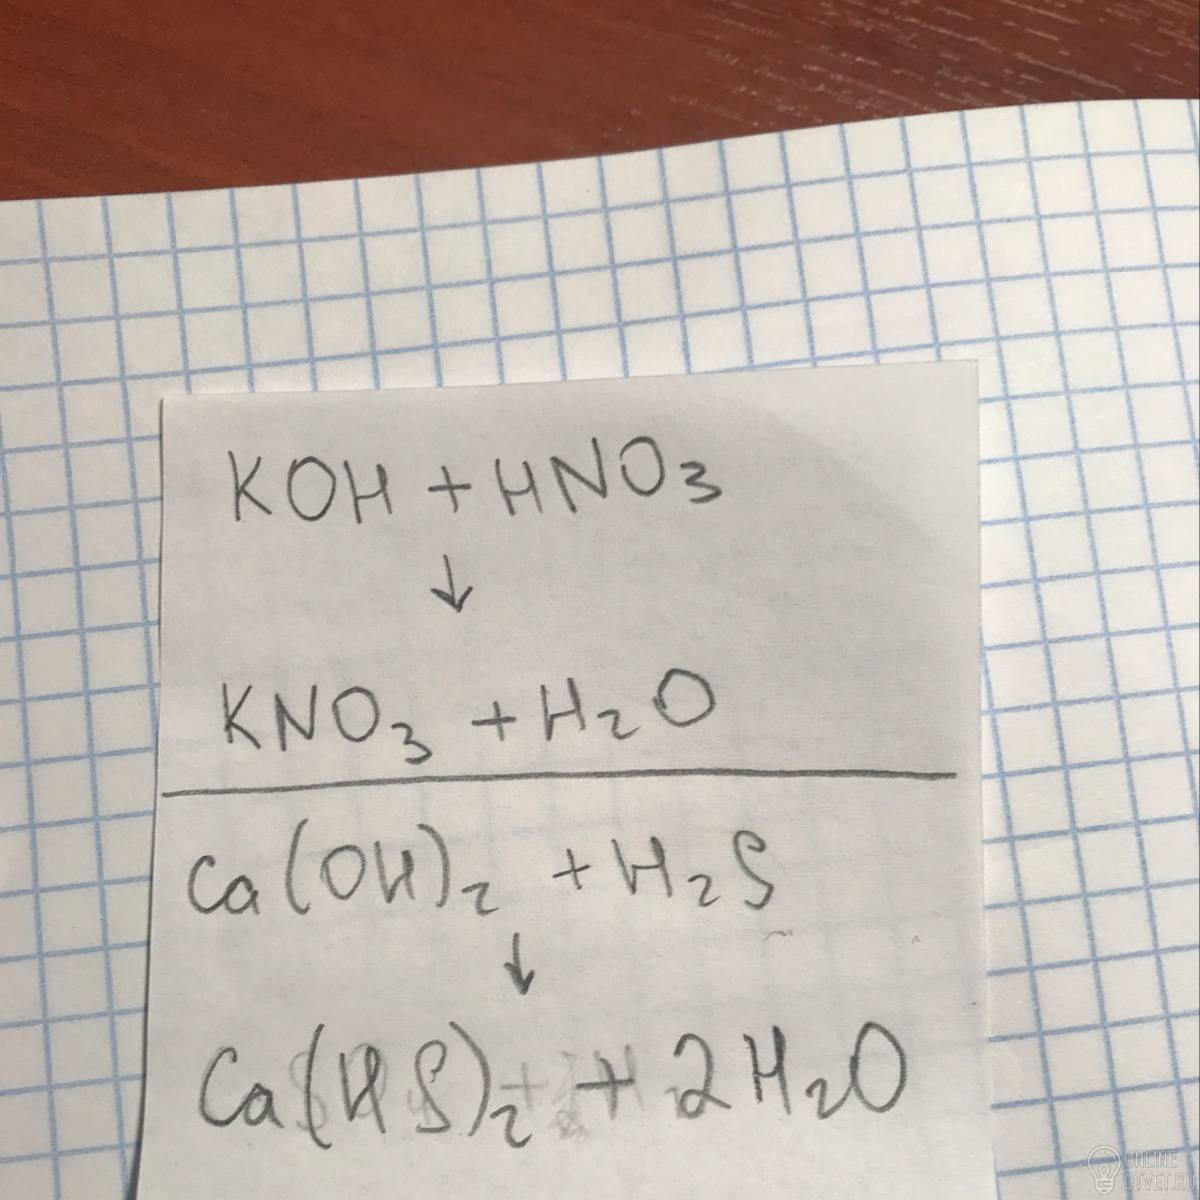 KOH + HNO₃
↓
KNO₃ + H₂O
Ca(OH)₂ + H₂S
↓
Ca(HS)₂ + 2H₂O
ONLINE
OTVET.RU